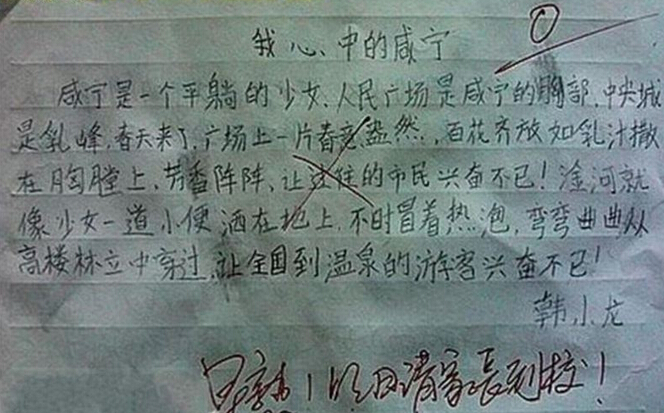 我心中的咸宁
咸宁是一个平躺的少女、人民广场是咸宁的胸部、中央城
是乳峰,春天来了,广场上一片春意盎然,百花齐放如乳汁撒
在胸膛上、芳香阵阵、让过往的市民兴奋不已!淦河就
像少女一道小便洒在地上,不时冒着热泡,弯弯曲曲从
高楼林立中穿过,让全国到温泉的游客兴奋不已!
韩小龙
早熟!明日请家长到校!